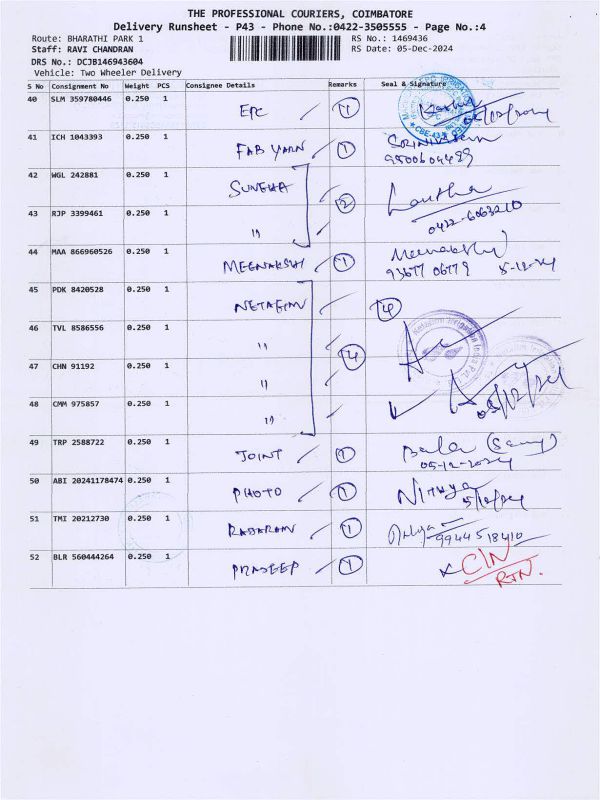 THE PROFESSIONAL COURIERS, COIMBATORE
Delivery Runsheet - P43 - Phone No.:0422-3505555 - Page No.:4
Route: BHARATHI PARK 1 RS No.: 1469436
Staff: RAVI CHANDRAN RS Date: 05-Dec-2024
DRS No.: DCJB146943604
Vehicle: Two Wheeler Delivery
S No Consignment No Weight PCS Consignee Details Remarks Seal & Signature
40 SLM 359780446 0.250 1 EPC 1
41 ICH 1043393 0.250 1 FAB YARN 1 SRINIVASAN
9500604499
42 WGL 242881 0.250 1 SUNEHA 2 Lautha
43 RJP 3399461 0.250 1 " 0422-6063210
44 MAA 866960526 0.250 1 MEENAKSHI 1 Meenakshi
93677 06779 5-12-24
45 PDK 8420528 0.250 1 NETAFIM 4
46 TVL 8586556 0.250 1 "
47 CHN 91192 0.250 1 " 4
48 CMM 975857 0.250 1 " 05/12/24
49 TRP 2588722 0.250 1 JOINT 1 Bala (Samy)
05-12-2024
50 ABI 20241178474 0.250 1 PHOTO 1 Nithya
5/12/24
51 TMI 20212730 0.250 1 RAJARAM 1 9944518410
52 BLR 560444264 0.250 1 PRADEEP 1 x C/N
RTN.